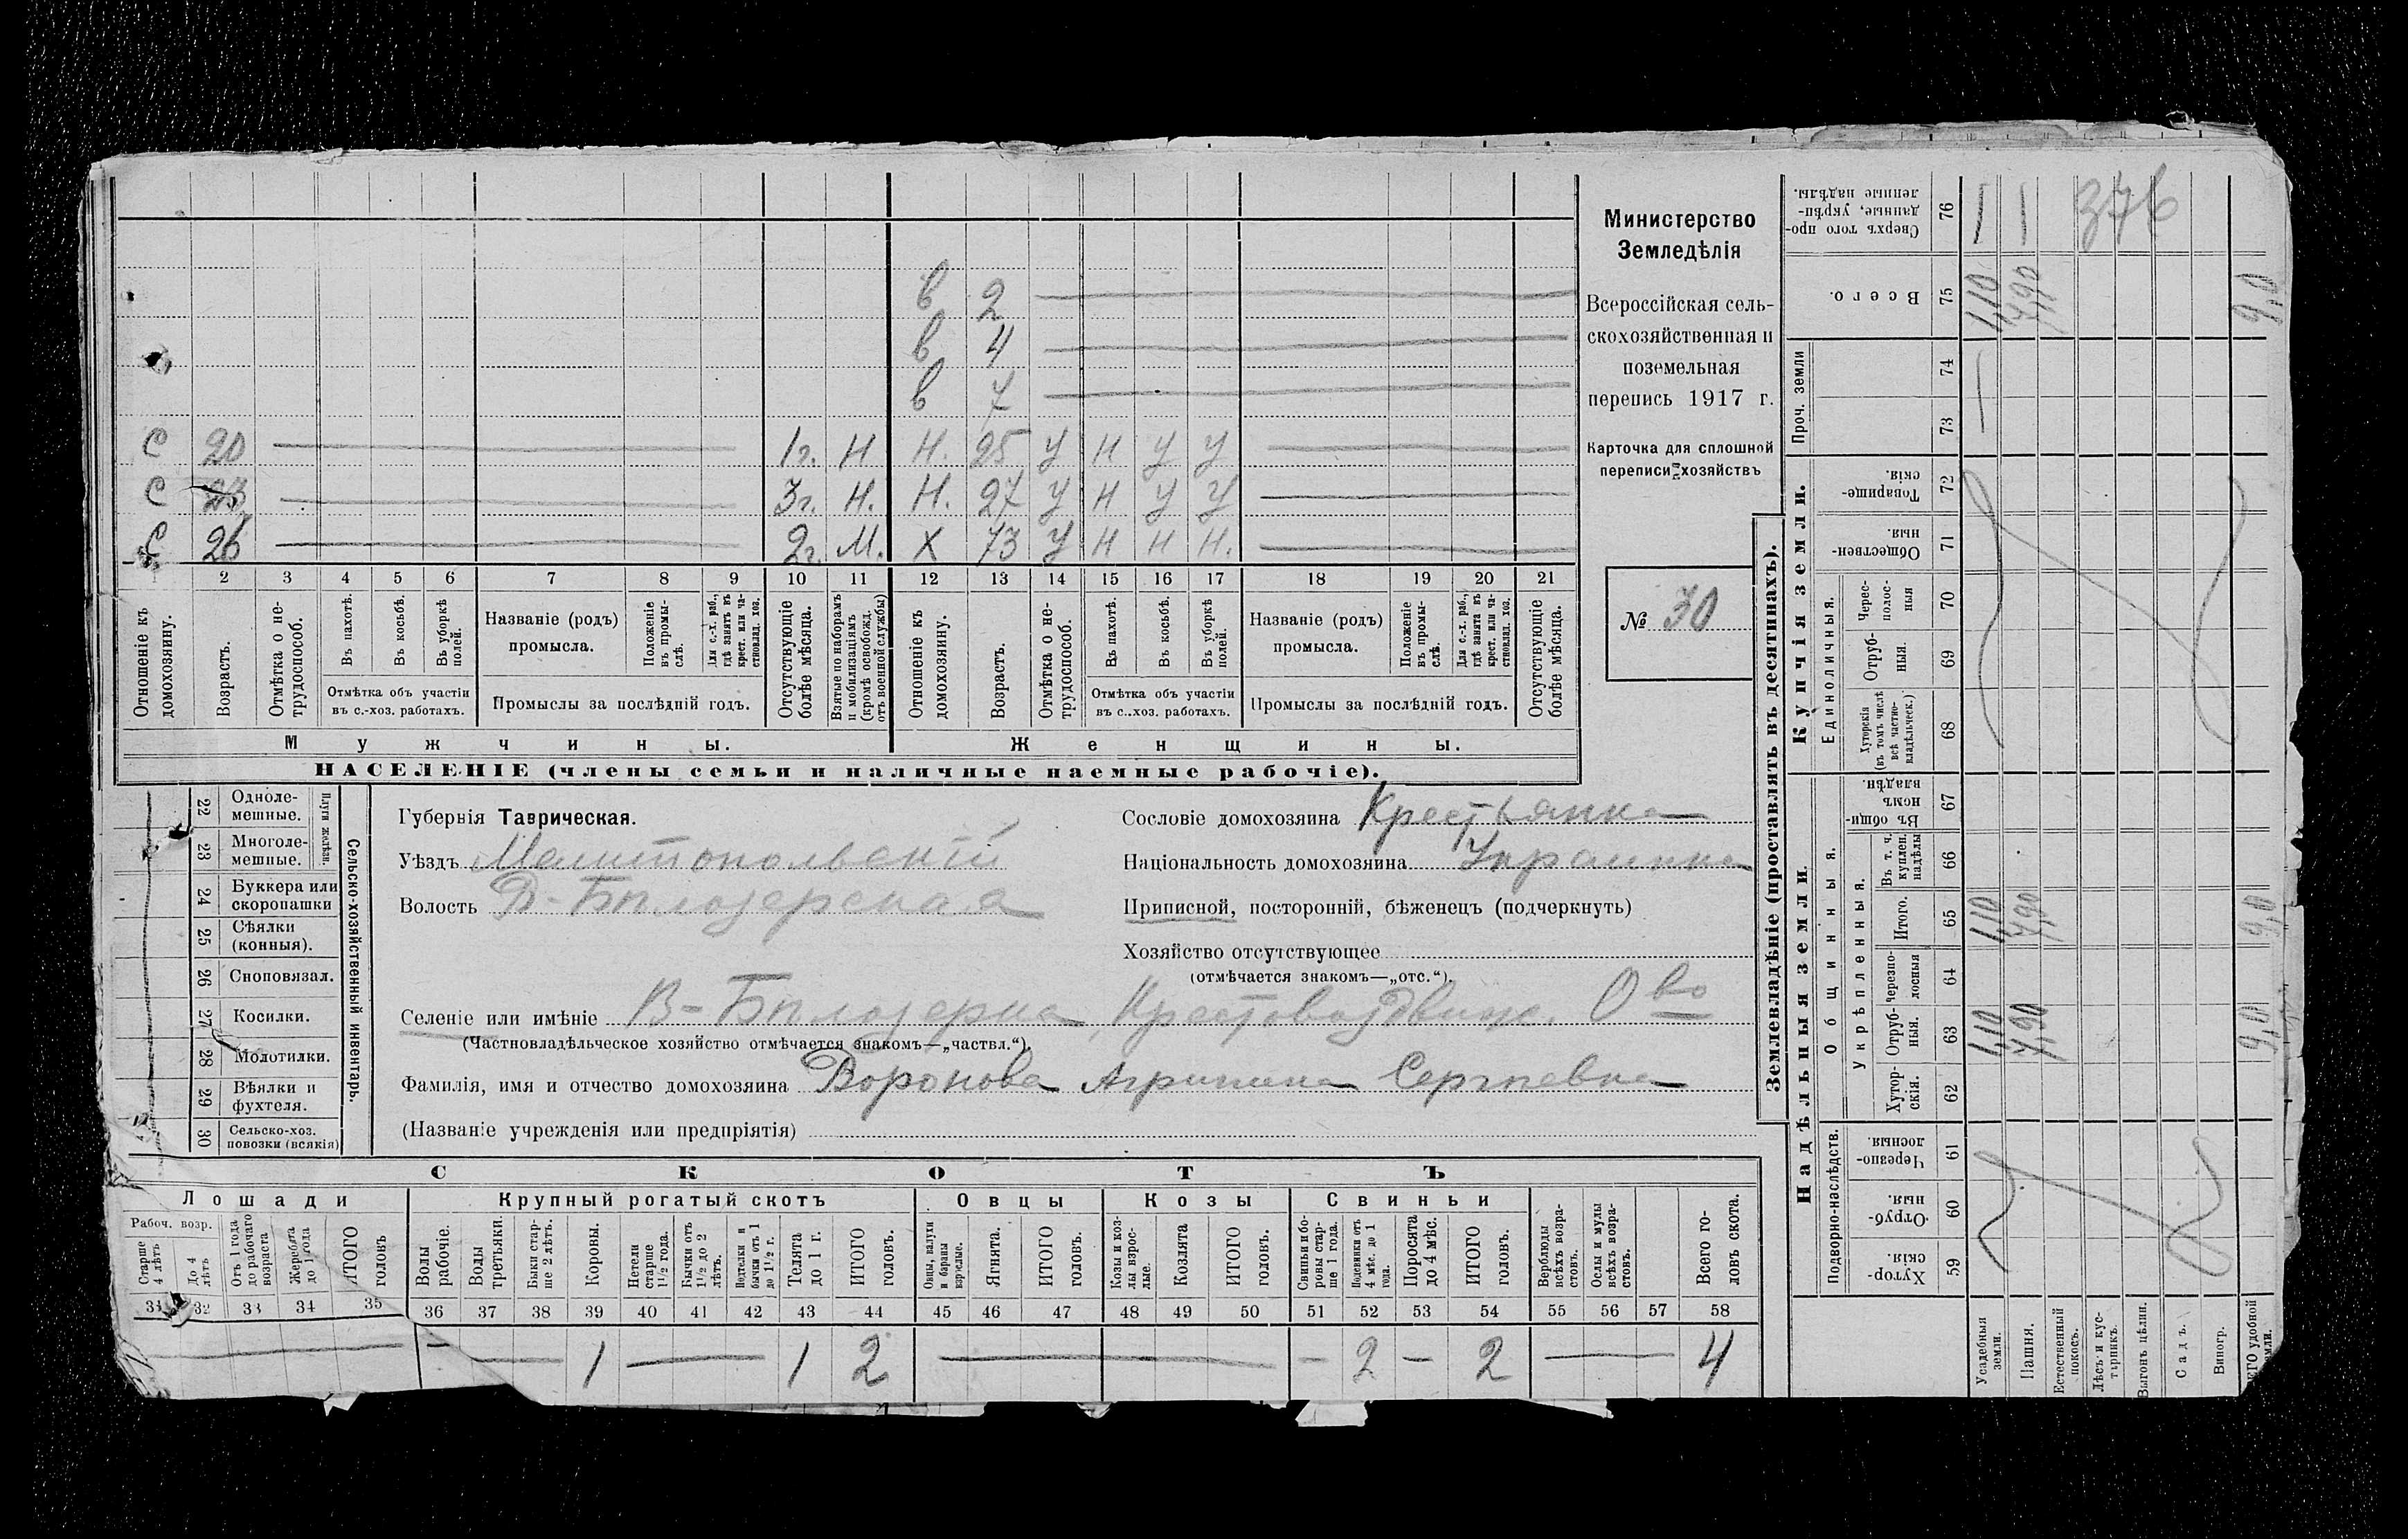 в 2
в 4
в 7
С 20 1г. Н Н. 25 У Н У У
С 23 3г. Н. Н. 27 У Н У У
С 26 2г. М. Х 73 У Н Н Н.
1 2 3 4 5 6 7 8 9 10 11 12 13 14 15 16 17 18 19 20 21
Отношеніе къ домохозяину.
Возрастъ.
Отмѣтка о не-трудоспособ.
Въ пахотѣ.
Въ косьбѣ.
Въ уборкѣ полей.
Отмѣтка объ участіи въ с.-хоз. работахъ.
Названіе (родъ) промысла.
Положеніе въ промы-слѣ.
Для с.-х. раб., гдѣ занятъ въ крест. или ча-стновлад. хоз.
Промыслы за послѣдній годъ.
Отсутствующіе болѣе мѣсяца.
Взятые по наборамъ и мобилизаціямъ (кромѣ освобожд. отъ военной службы)
Отношеніе къ домохозяину.
Возрастъ.
Отмѣтка о не-трудоспособ.
Въ пахотѣ.
Въ косьбѣ.
Въ уборкѣ полей.
Отмѣтка объ участіи въ с.-хоз. работахъ.
Названіе (родъ) промысла.
Положеніе въ промы-слѣ.
Для с.-х. раб., гдѣ занята въ крест. или ча-стновлад. хоз.
Промыслы за послѣдній годъ.
Отсутствующіе болѣе мѣсяца.
Мужчины. Женщины.
НАСЕЛЕНІЕ (члены семьи и наличные наемные рабочіе).
Министерство
Земледѣлія
Всероссійская сель-
скохозяйственная и
поземельная
перепись 1917 г.
Карточка для сплошной
переписи хозяйствъ
№ 30
Сельско-хозяйственный инвентарь.
Плуги желѣзн.
22 Одноле-мешные.
23 Многоле-мешные.
24 Буккера или скоропашки
25 Сѣялки (конныя).
26 Сноповязал.
27 Косилки.
28 Молотилки.
29 Вѣялки и фухтеля.
30 Сельско-хоз. повозки (всякія)
Губернія Таврическая.
Уѣздъ Мелитопольскій
Волость В-Бѣлозерская
Сословіе домохозяина Крестьянка
Національность домохозяина Украинка
Приписной, посторонній, бѣженецъ (подчеркнуть)
Хозяйство отсутствующее
(отмѣчается знакомъ—„отс.“).
Селеніе или имѣніе В-Бѣлозерка Крестовоздвиж. О во
(Частновладѣльческое хозяйство отмѣчается знакомъ—„частвл.“).
Фамилія, имя и отчество домохозяина Воронова Агрипина Сергѣевна
(Названіе учрежденія или предпріятія)
СКОТЪ
Лошади Крупный рогатый скотъ Овцы Козы Свиньи
Рабоч. возр.
Старше 4 лѣтъ
До 4 лѣтъ
Отъ 1 года до рабочаго возраста
Жеребята до 1 года
ИТОГО головъ
Волы рабочіе.
Волы третьяки.
Быки стар-ше 2 лѣтъ.
Коровы.
Нетели старше 1½ года.
Бычки отъ 1½ до 2 лѣтъ.
Подтелки и бычки отъ 1 до 1½ г.
Телята до 1 г.
ИТОГО головъ.
Овцы, валухи и бараны взрослые.
Ягнята.
ИТОГО головъ.
Козы и коз-лы взрос-лые.
Козлята
ИТОГО головъ.
Свиньи и бо-ровы стар-ше 1 года.
Подсвинки отъ 4 мѣс. до 1 года.
Поросята до 4 мѣс.
ИТОГО головъ.
Верблюды всѣхъ возра-стовъ.
Ослы и мулы всѣхъ возра-стовъ.
Всего го-ловъ скота.
31 32 33 34 35 36 37 38 39 40 41 42 43 44 45 46 47 48 49 50 51 52 53 54 55 56 57 58
1 1 2 2 2 4
Землевладѣніе (проставлять въ десятинахъ).
Надѣльныя земли.
Купчія земли.
Проч. земли
Подворно-наслѣдств.
Общинныя.
Укрѣпленныя.
Единоличныя.
Хутор-скія. 59
Отруб-ныя. 60
Черезпо-лосныя. 61
Хутор-скія. 62
Отруб-ныя. 63
Черезпо-лосныя 64
Итого. 65
Въ т. ч. куплен. надѣлы 66
Въ общи-номъ владѣн. 67
Хуторскія (въ томъ числѣ всѣ частно-владѣльческ.) 68
Отруб-ныя. 69
Черес-полос-ныя 70
Обществен-ныя. 71
Товарище-скія. 72
73
74
Всего. 75
Сверхъ того про-данные, укрѣп-ленные надѣлы. 76
376
1,10 7,90 9,0
1,10 7,90 9,0
1,10 7,90 9,0
Усадебныя земли.
Пашня.
Естественный покосъ.
Лѣсъ и кус-тарникъ.
Выгонъ цѣлин.
Садъ.
Виногр.
ЕГО удобной земли.